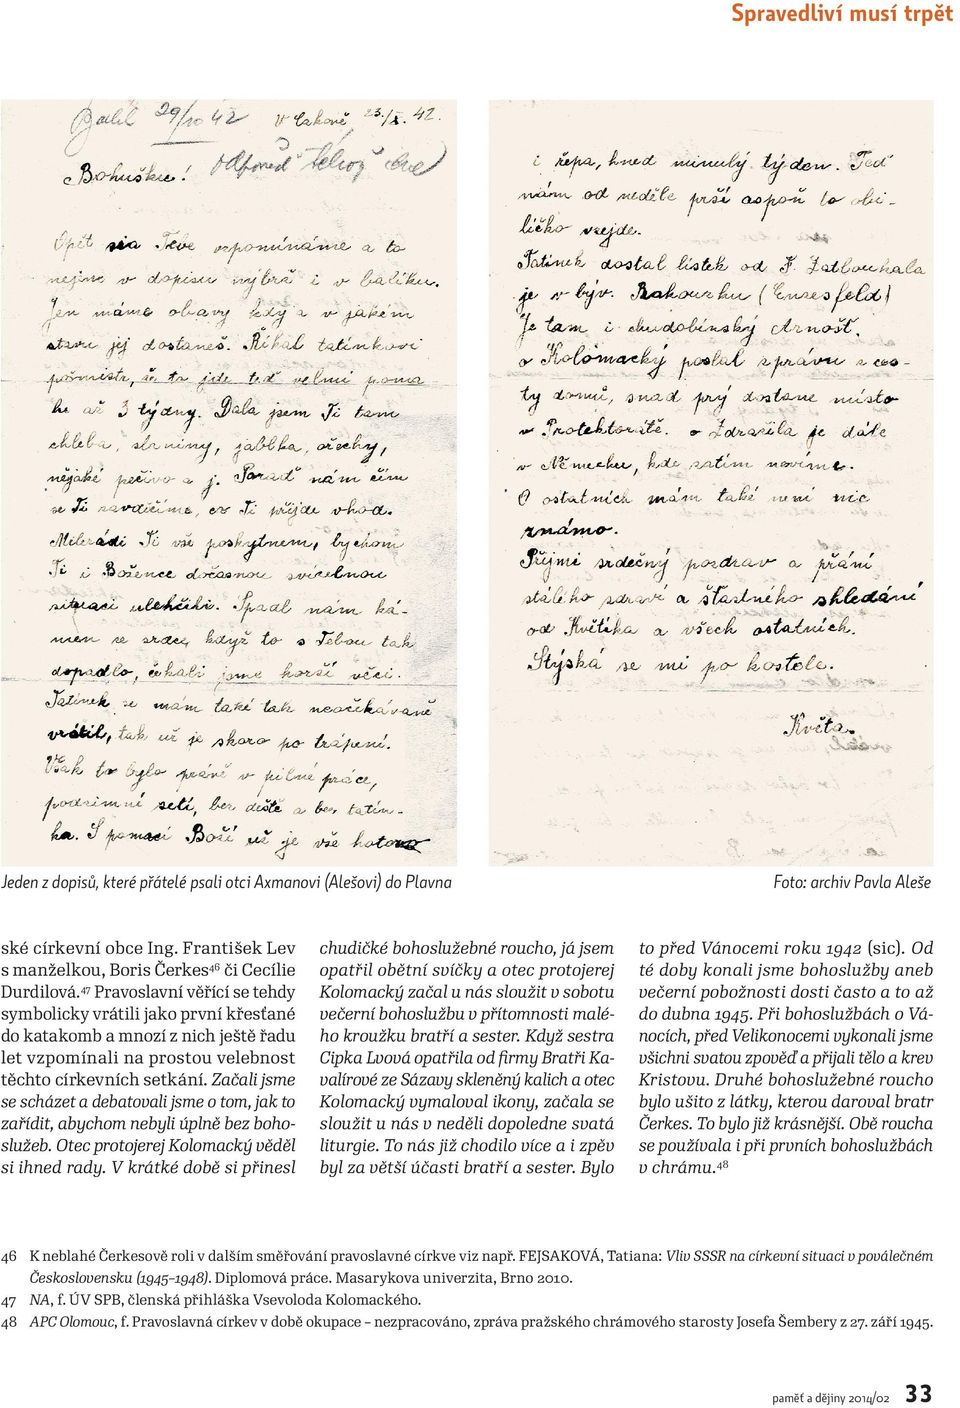 Spravedliví musí trpět
29/10 42 V Cakově 23./X. 42.
Bohuškie! odpověď
Opět sia Teve vzpomínáme a to
nejine v dopisu nýbrž i v balíku.
Jen máme obavy kdy a v jakém
stavu jej dostaneš. Říkal tatínkovi
poštmistr, že to jde teď velmi poma
lu až 3 týdny. Dala jsem Ti tam
chleba, slaniny, jablka, ořechy,
nějaké pečivo a j. Poraď nám čím
se Ti zavděčíme, co Ti přijde vhod.
Milerádi Ti vše poskytnem, bychom
Ti i Božence dočasnou svízelnou
situaci ulehčili. Spadl nám ká-
men ze srdce, když to s Tebou tak
dopadlo, čekali jsme horší věci.
Tatínek se mám také tak neočekávaně
vrátil, tak už je skoro po trápení.
Však to bylo právě v pilné práce,
podzimní setí, bez deště a bez tatín-
ka. S pomocí Boží už je vše hotovo
i řepa, hned minulý týden. Teď
nám od neděle prší aspoň to obi-
líčko vzejde.
Tatínek dostal lístek od F. Zatloukala
je v býv. Rakousku (Enzesfeld)
Je tam i chudobínský Arnošt.
o Kolomacký poslal zprávu z ces-
ty domů, snad prý dostane místo
v Protektorátě. o Zdražila je dále
v Německu, kde zatím nevíme.
O ostatních mám také není nic
známo.
Přijmi srdečný pozdrav a přání
stálého zdraví a šťastného shledání
od Květíka a všech ostatních.
Stýská se mi po kostele.
Květa.
Jeden z dopisů, které přátelé psali otci Axmanovi (Alešovi) do Plavna
Foto: archiv Pavla Aleše
ské církevní obce Ing. František Lev
s manželkou, Boris Čerkes⁴⁶ či Cecílie
Durdilová.⁴⁷ Pravoslavní věřící se tehdy
symbolicky vrátili jako první křesťané
do katakomb a mnozí z nich ještě řadu
let vzpomínali na prostou velebnost
těchto církevních setkání. Začali jsme
se scházet a debatovali jsme o tom, jak to
zařídit, abychom nebyli úplně bez boho-
služeb. Otec protojerej Kolomacký věděl
si ihned rady. V krátké době si přinesl
chudičké bohoslužebné roucho, já jsem
opatřil obětní svíčky a otec protojerej
Kolomacký začal u nás sloužit v sobotu
večerní bohoslužbu v přítomnosti malé-
ho kroužku bratří a sester. Když sestra
Cipka Lvová opatřila od firmy Bratři Ka-
valírové ze Sázavy skleněný kalich a otec
Kolomacký vymaloval ikony, začala se
sloužit u nás v neděli dopoledne svatá
liturgie. To nás již chodilo více a i zpěv
byl za větší účasti bratří a sester. Bylo
to před Vánocemi roku 1942 (sic). Od
té doby konali jsme bohoslužby aneb
večerní pobožnosti dosti často a to až
do dubna 1945. Při bohoslužbách o Vá-
nocích, před Velikonocemi vykonali jsme
všichni svatou zpověď a přijali tělo a krev
Kristovu. Druhé bohoslužebné roucho
bylo ušito z látky, kterou daroval bratr
Čerkes. To bylo již krásnější. Obě roucha
se používala i při prvních bohoslužbách
v chrámu.⁴⁸
46 K neblahé Čerkesově roli v dalším směřování pravoslavné církve viz např. FEJSAKOVÁ, Tatiana: Vliv SSSR na církevní situaci v poválečném
Československu (1945–1948). Diplomová práce. Masarykova univerzita, Brno 2010.
47 NA, f. ÚV SPB, členská přihláška Vsevoloda Kolomackého.
48 APC Olomouc, f. Pravoslavná církev v době okupace – nezpracováno, zpráva pražského chrámového starosty Josefa Šembery z 27. září 1945.
paměť a dějiny 2014/02 33